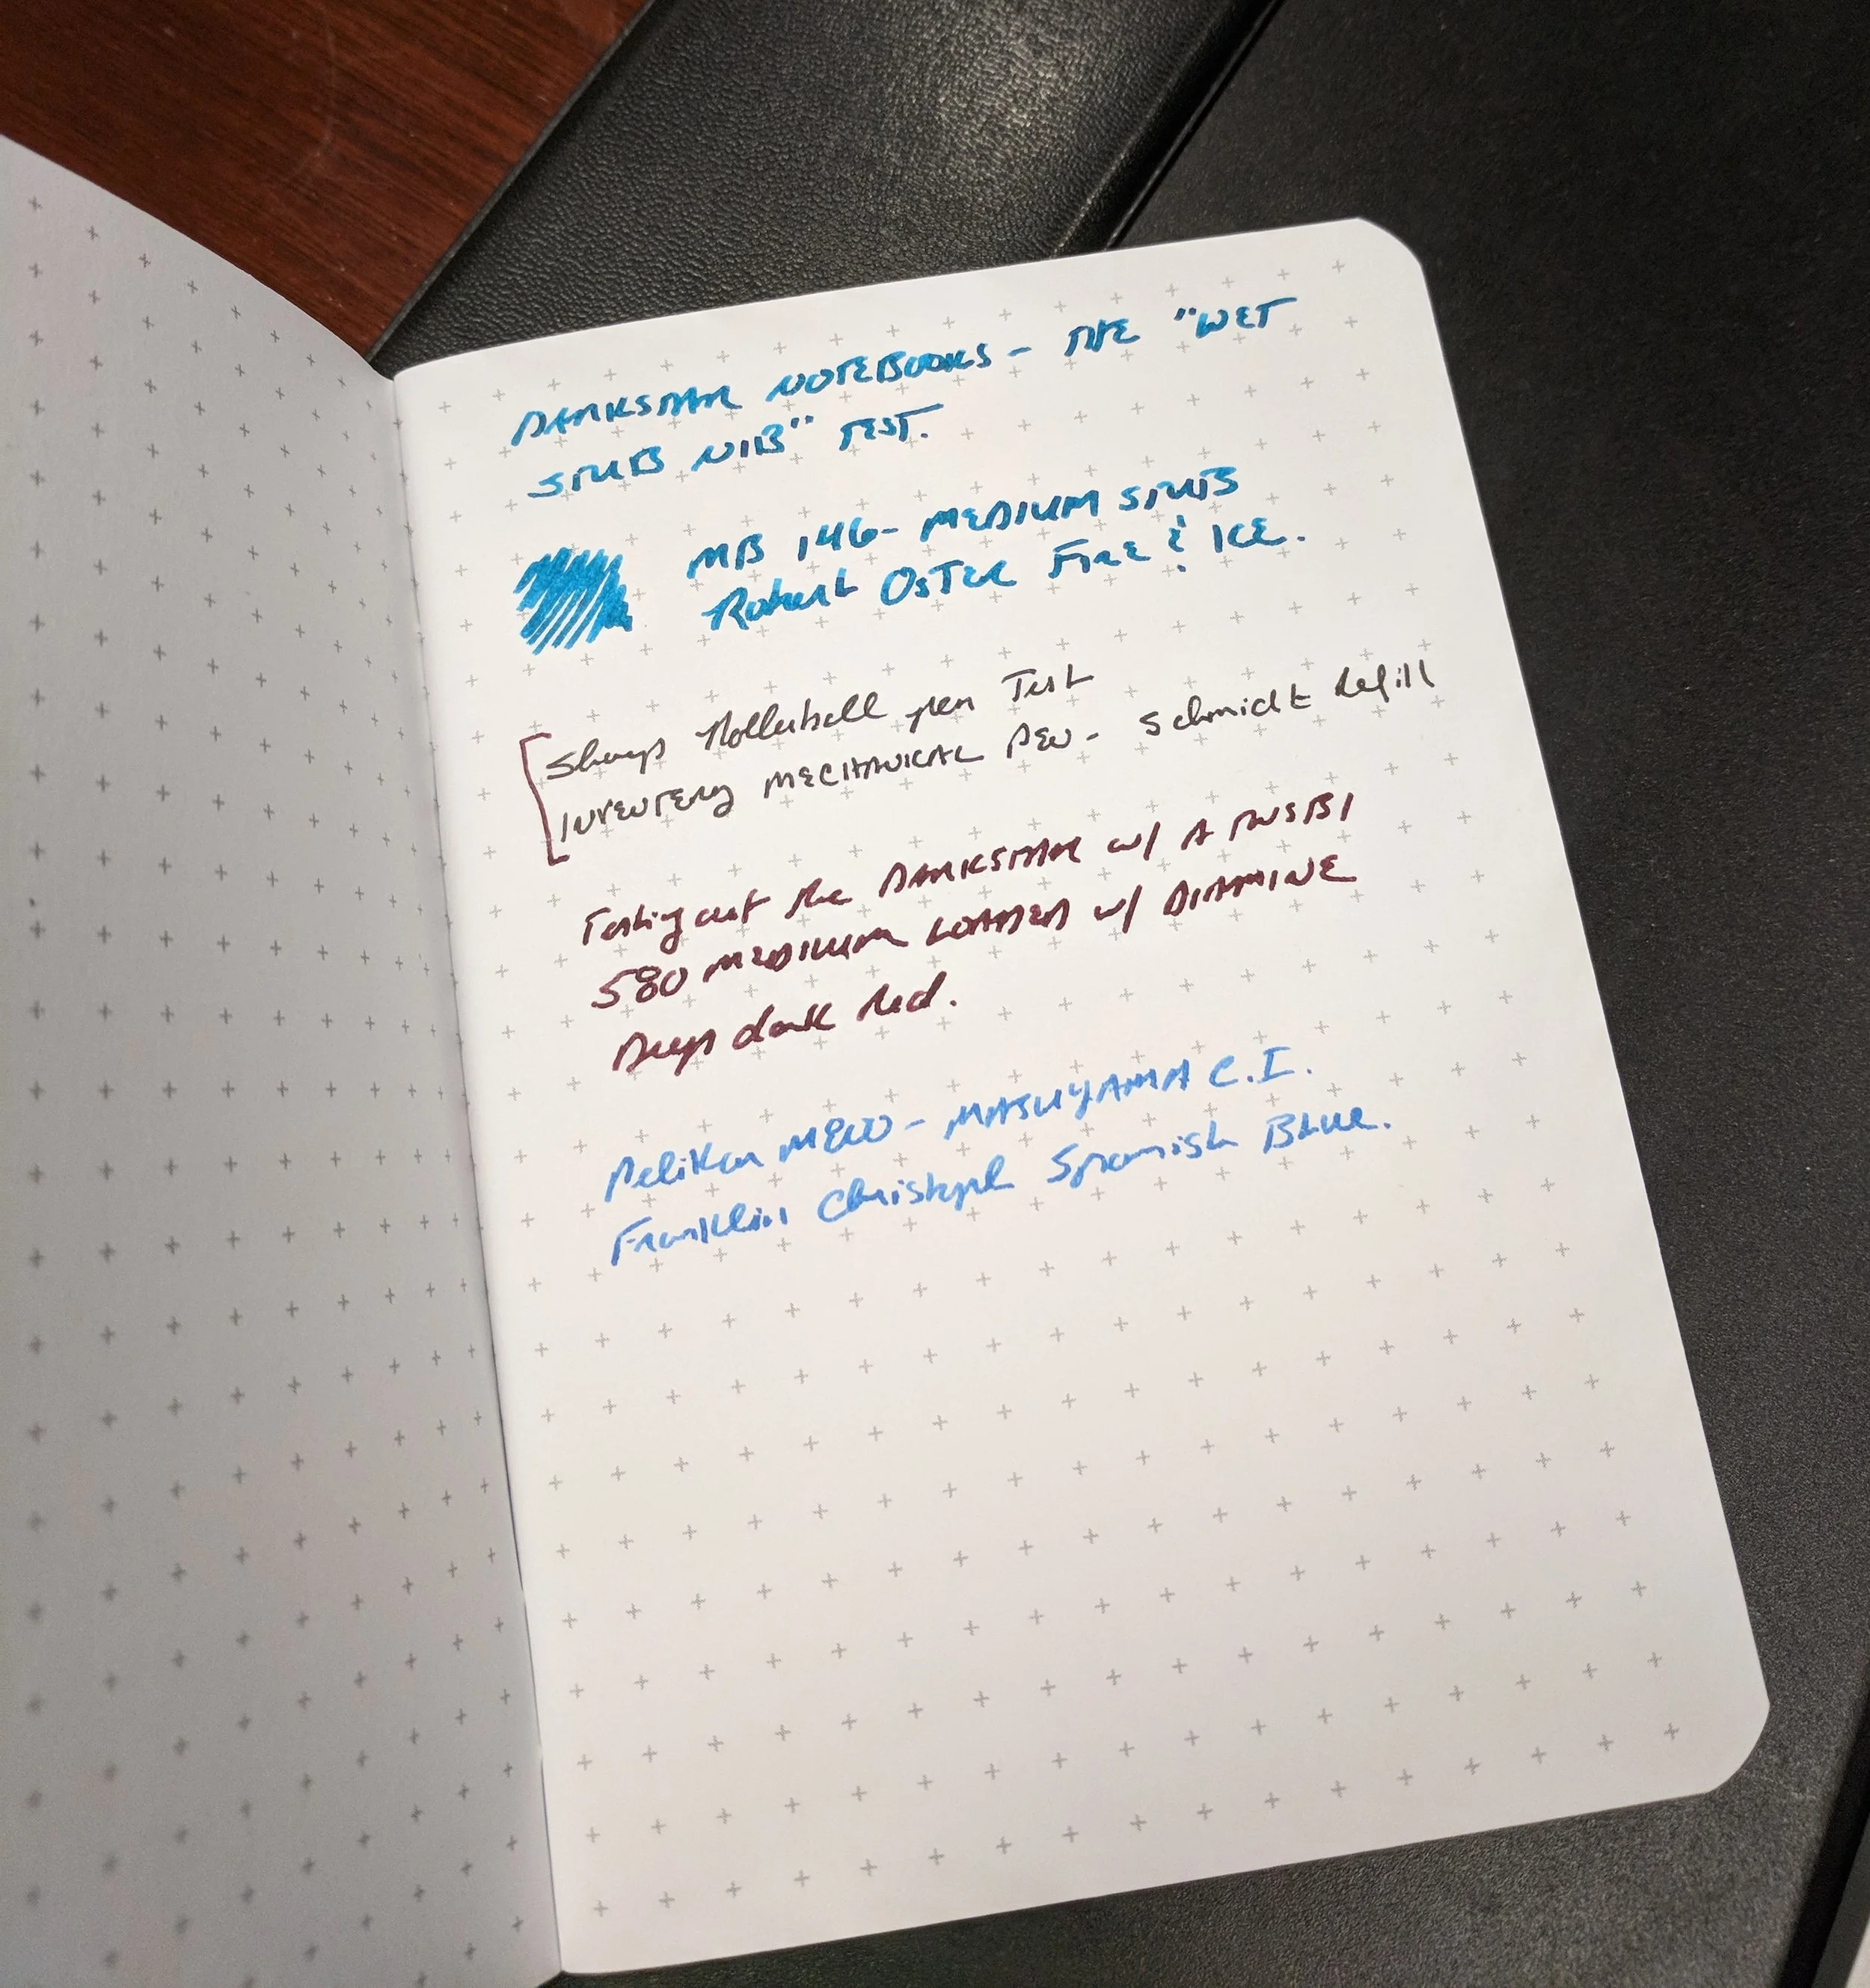 DARKSTAR NOTEBOOKS - THE "WET
STUB NIB" TEST.
MB 146 - MEDIUM STUB
Robert OSTER FIRE & ICE.
Sharp Rollerball pen Test
INVENTERY MECHANICAL PEN - Schmidt Refill
Testing out the DARKSTAR w/ A TWSBI
580 MEDIUM LOADED w/ DIAMINE
Deep dark Red.
Pelikan M800 - MASUYAMA C.I.
Franklin Christoph Spanish Blue.